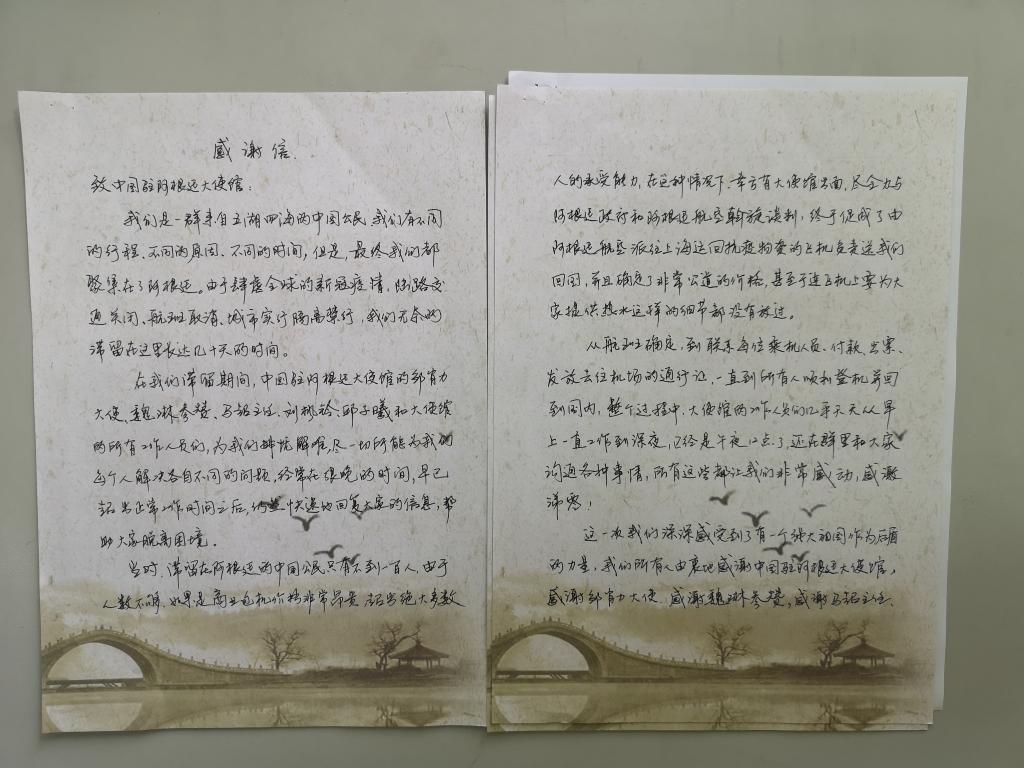 感谢信.
致中国驻阿根廷大使馆：
我们是一群来自五湖四海的中国公民,我们有不同
的行程、不同的原因、不同的时间，但是，最终我们都
聚集在了阿根廷。由于肆虐全球的新冠疫情，陆路交
通关闭、航班取消、城市实行隔离禁行，我们无奈的
滞留在这里长达几十天的时间。
在我们滞留期间，中国驻阿根廷大使馆的邹肖力
大使、魏琳参赞、马铭主任、刘彬裕、邱子曦和大使馆
的所有工作人员们，为我们排忧解难，尽一切所能为我们
每个人解决各自不同的问题，经常在很晚的时间，早已
超出正常工作时间之后，快速地回复大家的信息，帮
助大家脱离困境。
当时,滞留在阿根廷的中国公民只有不到一百人，由于
人数不够，如果是商业包机价格非常昂贵,超出绝大多数
人的承受能力，在这种情况下，幸亏有大使馆出面，尽全力与
阿根廷政府和阿根廷航空斡旋谈判，终于促成了由
阿根廷航空派往上海运回抗疫物资的飞机负责送我们
回国，并且确定了非常公道的价格，甚至于连飞机上要为大
家提供热水这样的细节都没有放过。
从航班确定，到联系每位乘机人员、付款、出票、
发放去往机场的通行证，一直到所有人顺利登机并回
到国内，整个过程中，大使馆的工作人员们几乎天天从早
上一直工作到深夜，已经是午夜12点了,还在群里和大家
沟通各种事情，所有这些都让我们非常感动，感激
涕零！
这一次我们深深感受到了有一个强大祖国作为后盾
的力量，我们所有人由衷地感谢中国驻阿根廷大使馆，
感谢邹肖力大使，感谢魏琳参赞，感谢马铭主任、